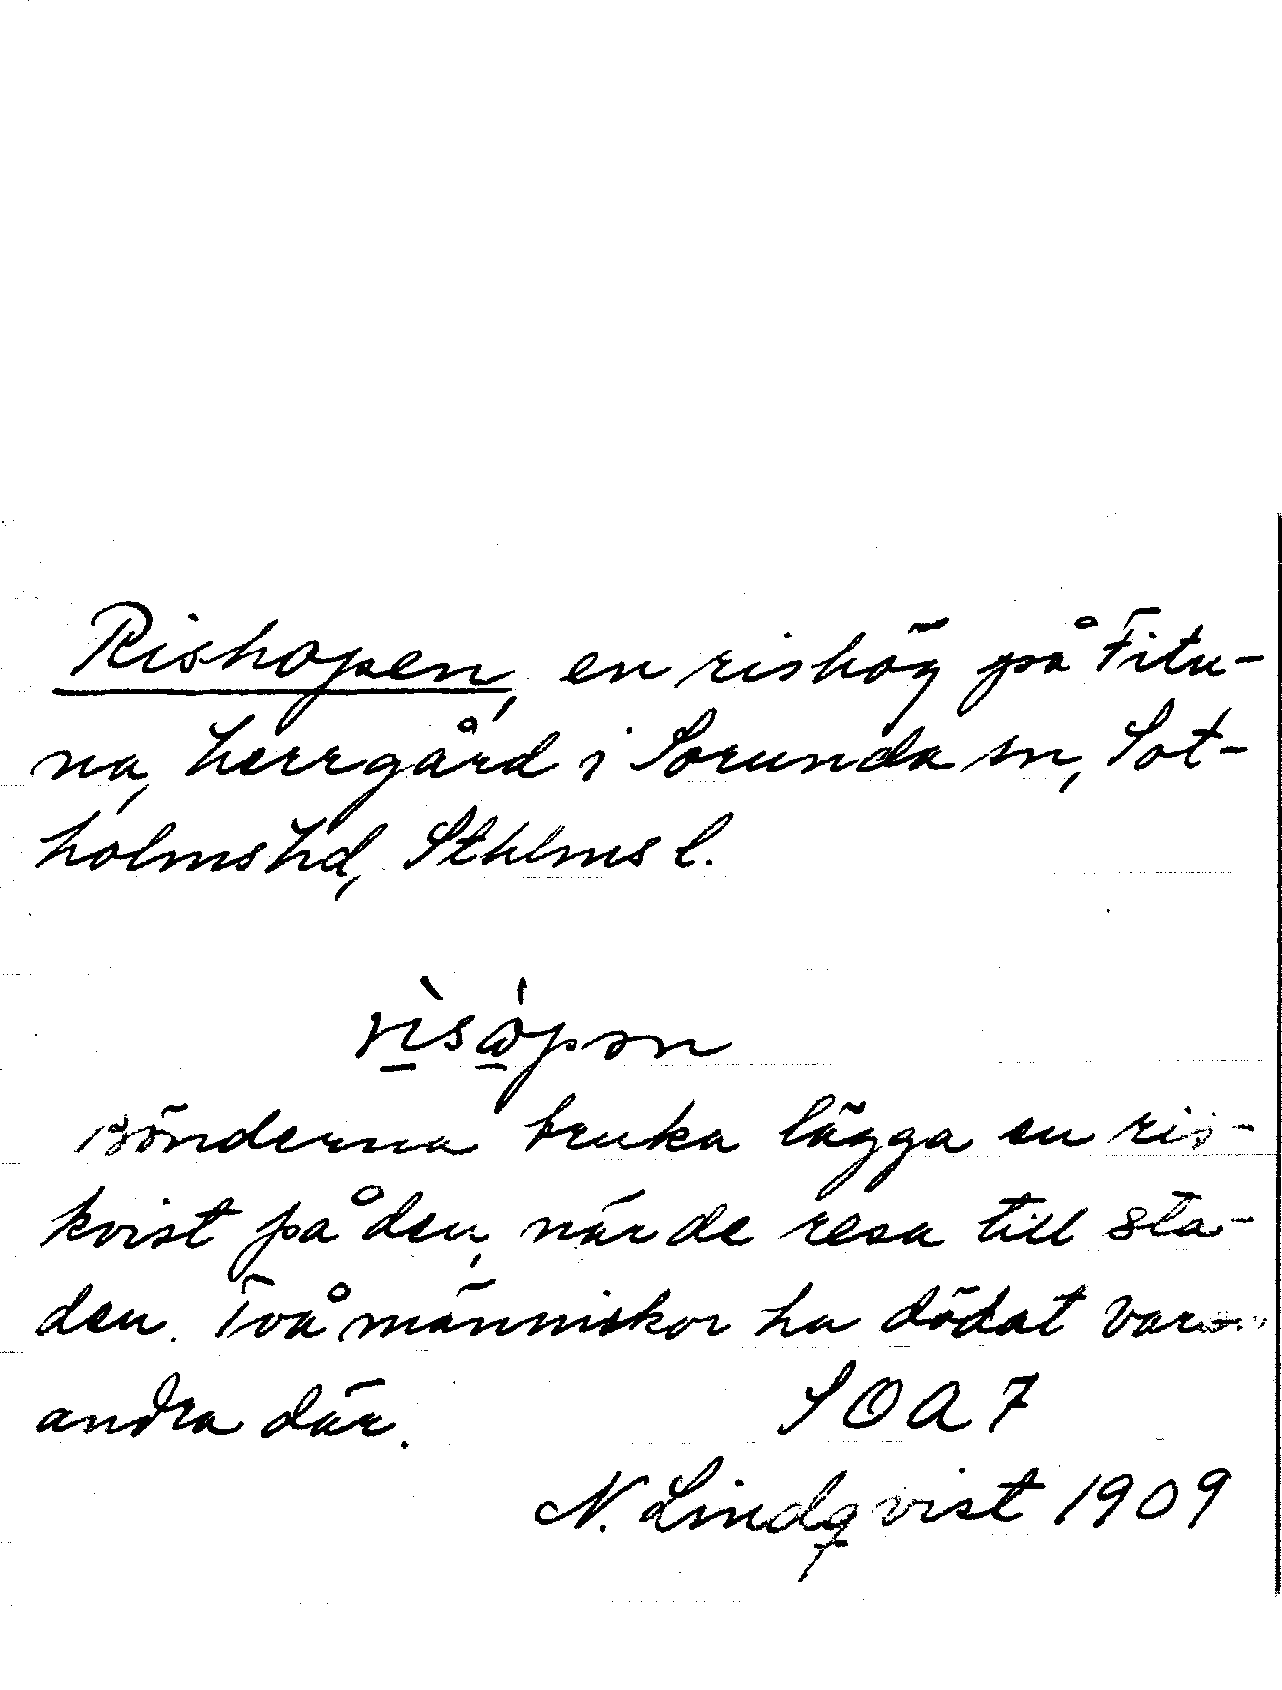 Rishopen, en rishög på Fitu-
na, herrgård i Sorunda sn, Sot-
holms hd, Sthlms l.
Bönderna bruka lägga en ris-
kvist på den, när de resa till sta-
den. Två människor ha dödat var-
andra där. SOA 7
N. Lindqvist 1909